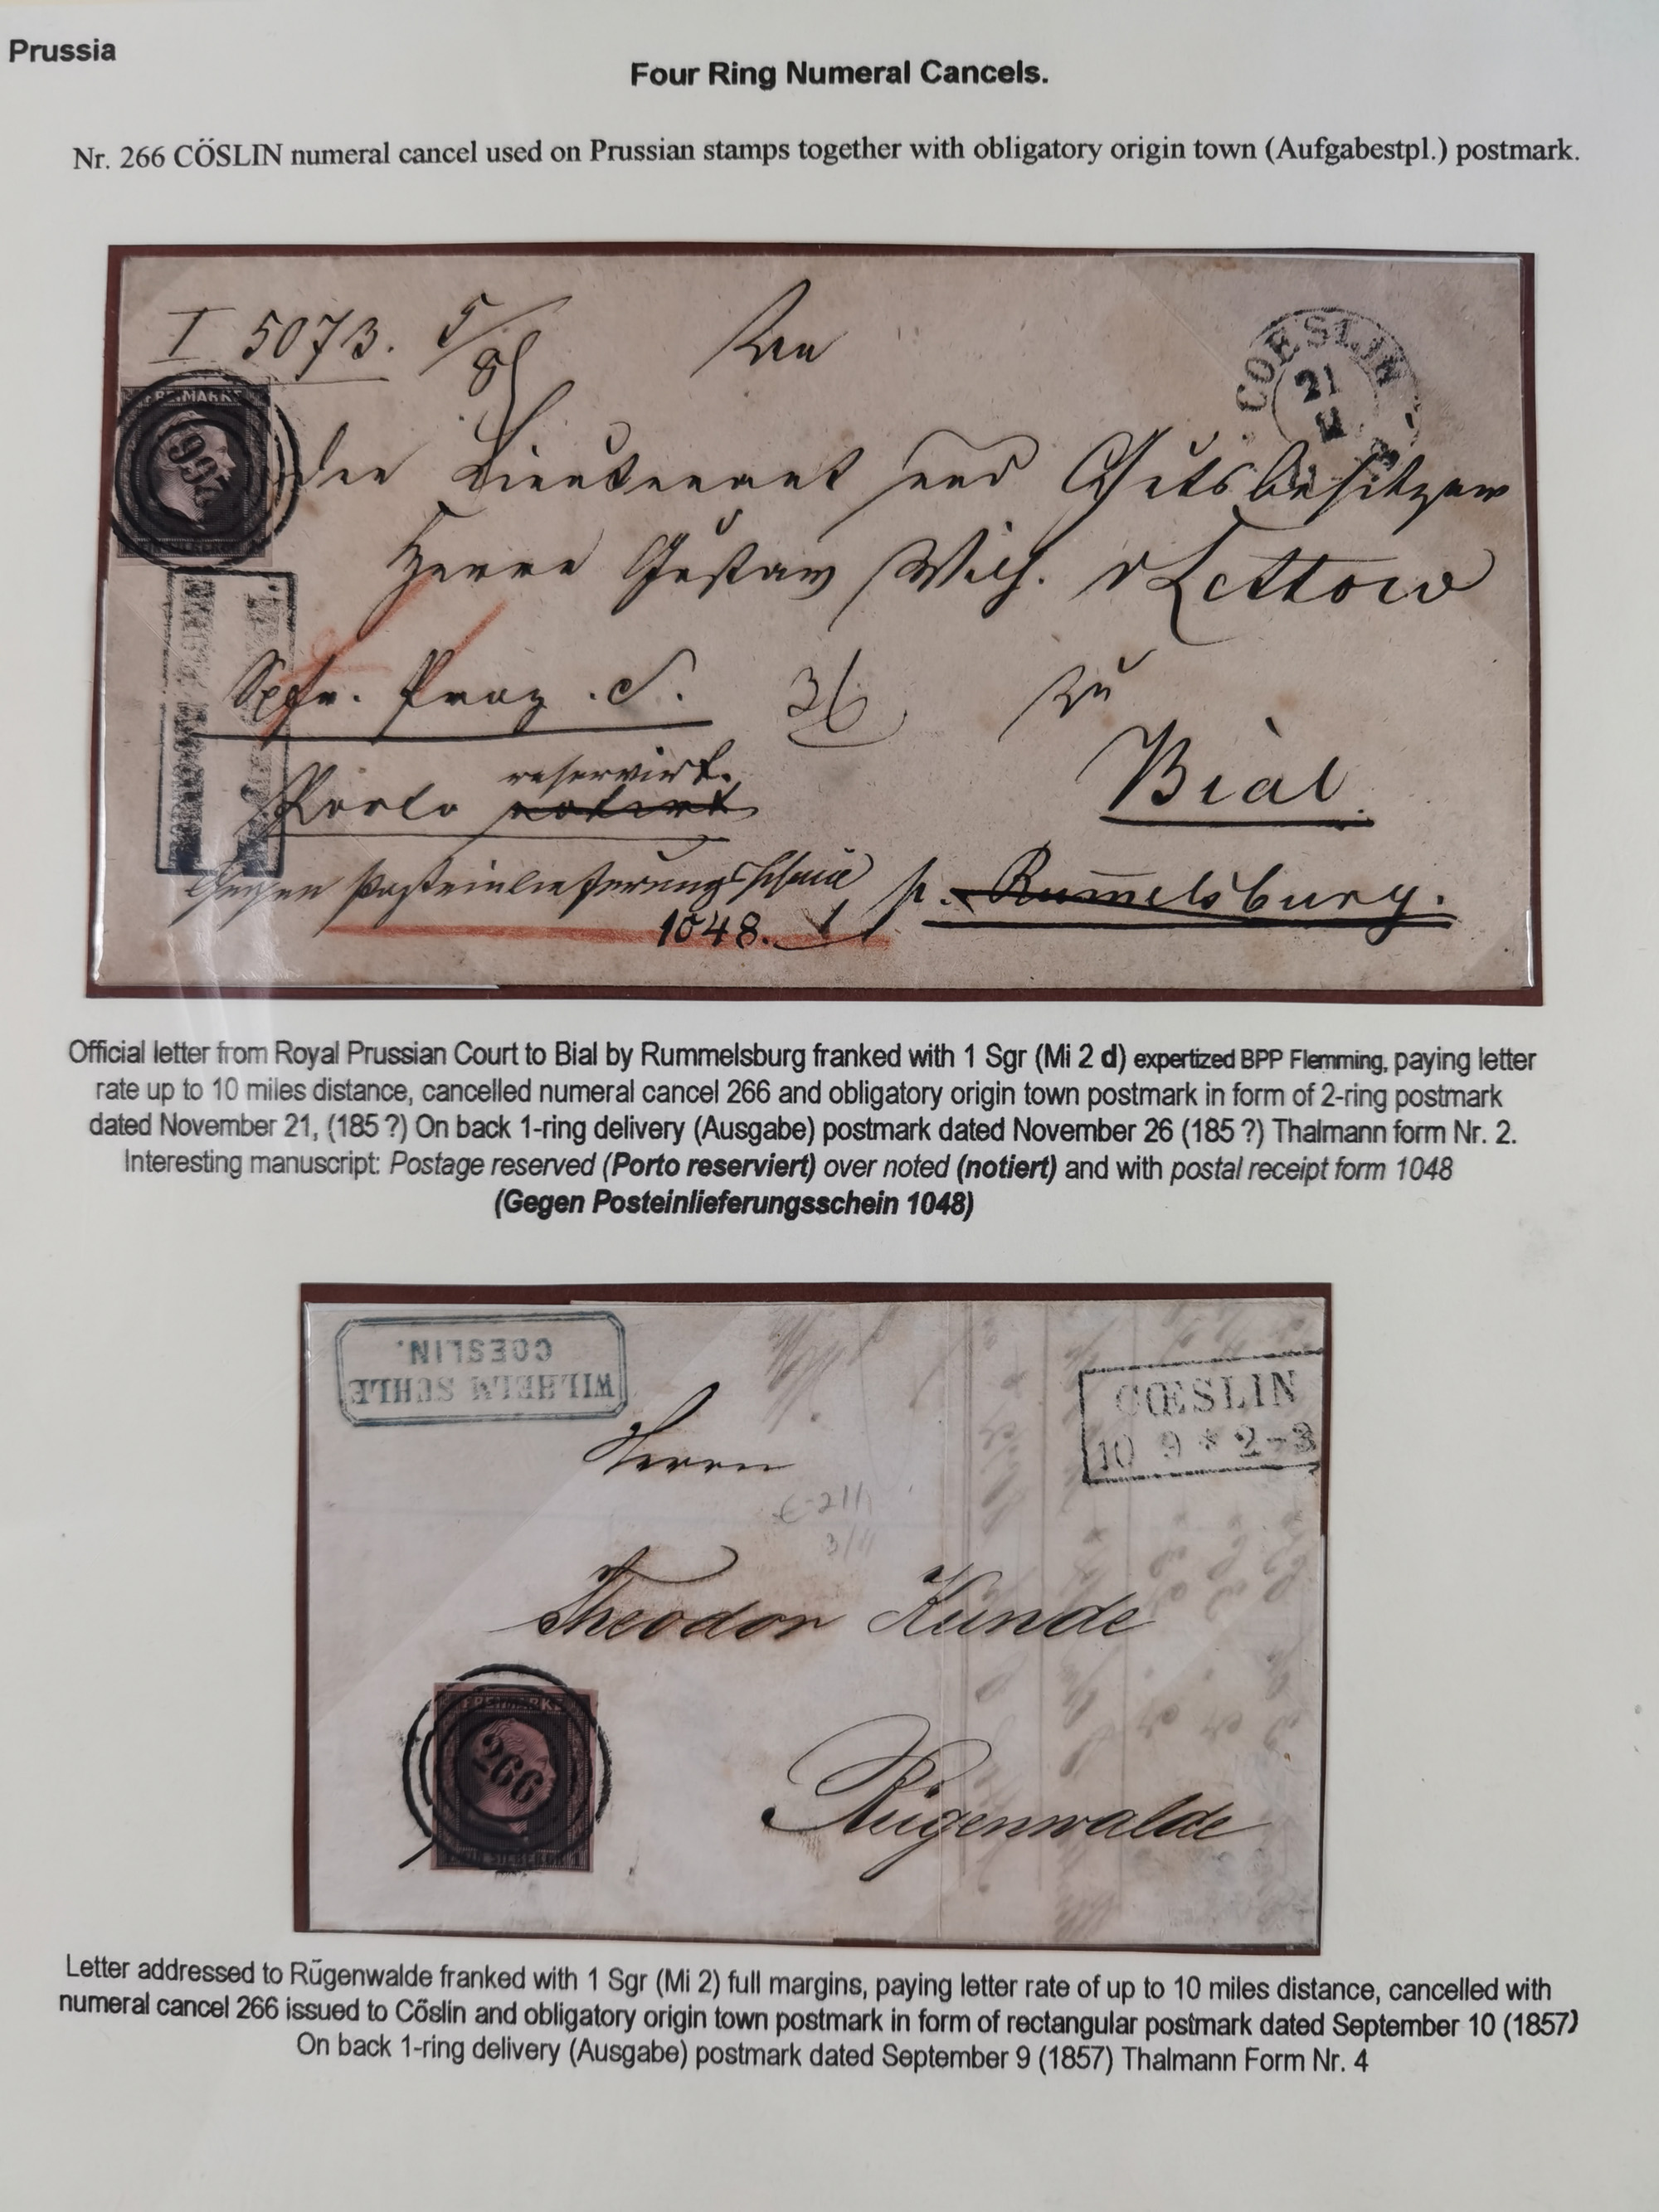 Prussia
Four Ring Numeral Cancels.
Nr. 266 CÖSLIN numeral cancel used on Prussian stamps together with obligatory origin town (Aufgabestpl.) postmark.
I 5073. 5/8
An
COESLIN
21
FREIMARKE
266
den Lieutenant und Gutsbesitzer
Herrn Gustav Wilh. v Lettow
zu
Bial
reservirt.
Porto notirt
Gegen Posteinlieferungsschein
p. Rummelsburg.
1048.
Official letter from Royal Prussian Court to Bial by Rummelsburg franked with 1 Sgr (Mi 2 d) expertized BPP Flemming, paying letter
rate up to 10 miles distance, cancelled numeral cancel 266 and obligatory origin town postmark in form of 2-ring postmark
dated November 21, (185 ?) On back 1-ring delivery (Ausgabe) postmark dated November 26 (185 ?) Thalmann form Nr. 2.
Interesting manuscript: Postage reserved (Porto reserviert) over noted (notiert) and with postal receipt form 1048
(Gegen Posteinlieferungsschein 1048)
WILHELM SCHLE
COESLIN.
CŒSLIN
10 9 * 2-3
Herrn
Theodor Kunde
FREIMARKE
266
EIN SILBERGR 1
Rügenwalde
Letter addressed to Rügenwalde franked with 1 Sgr (Mi 2) full margins, paying letter rate of up to 10 miles distance, cancelled with
numeral cancel 266 issued to Cöslin and obligatory origin town postmark in form of rectangular postmark dated September 10 (1857)
On back 1-ring delivery (Ausgabe) postmark dated September 9 (1857) Thalmann Form Nr. 4